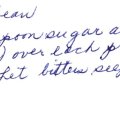 ean
poon sugar a
) over each p
Let bitters see